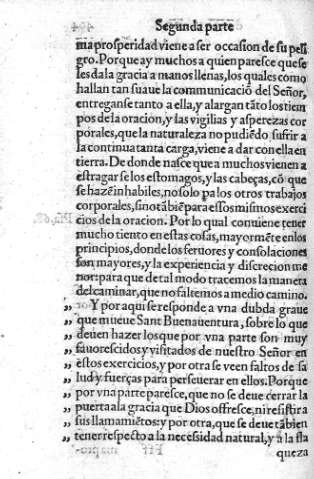 Segunda parte
ma prosperidad viene a ser occasion de su peli
gro. Porque ay muchos a quien parece que se
les da la gracia a manos llenas, los quales como
hallan tan suaue la communicaciõ del Señor,
entreganse tanto a ella, y alargan tãto los tiem
pos de la oracion, y las vigilias y asperezas cor
porales, que la naturaleza no pudiẽdo suffrir a
la continua tanta carga, viene a dar con ella en
tierra. De donde nasce que a muchos vienen a
estragarse los estomagos, y las cabeças, cõ que
se hazẽ inhabiles, no solo pa los otros trabajos
corporales, sino tãbiẽ para essos mismos exerci
cios de la oracion. Por lo qual conuiene tener
mucho tiento en estas cosas, mayormẽte en los
principios, donde los feruores y consolaciones
son mayores, y la experiencia y discrecion me
nor: para que de tal modo tracemos la manera
del caminar, que no faltemos a medio camino.
„ Y por aqui se responde a vna dubda graue
„ que mueue Sant Buenauentura, sobre lo que
„ deuen hazer los que por vna parte son muy
„ fauorescidos y visitados de nuestro Señor en
„ estos exercicios, y por otra se veen faltos de sa
„ lud y fuerças para perseuerar en ellos. Porque
„ por vna parte paresce, que no se deue cerrar la
„ puerta a la gracia que Dios offresce, ni resistir a
„ sus llamamiẽtos: y por otra, que se deue tãbien
„ tener respecto a la necessidad natural, y a la fla
queza